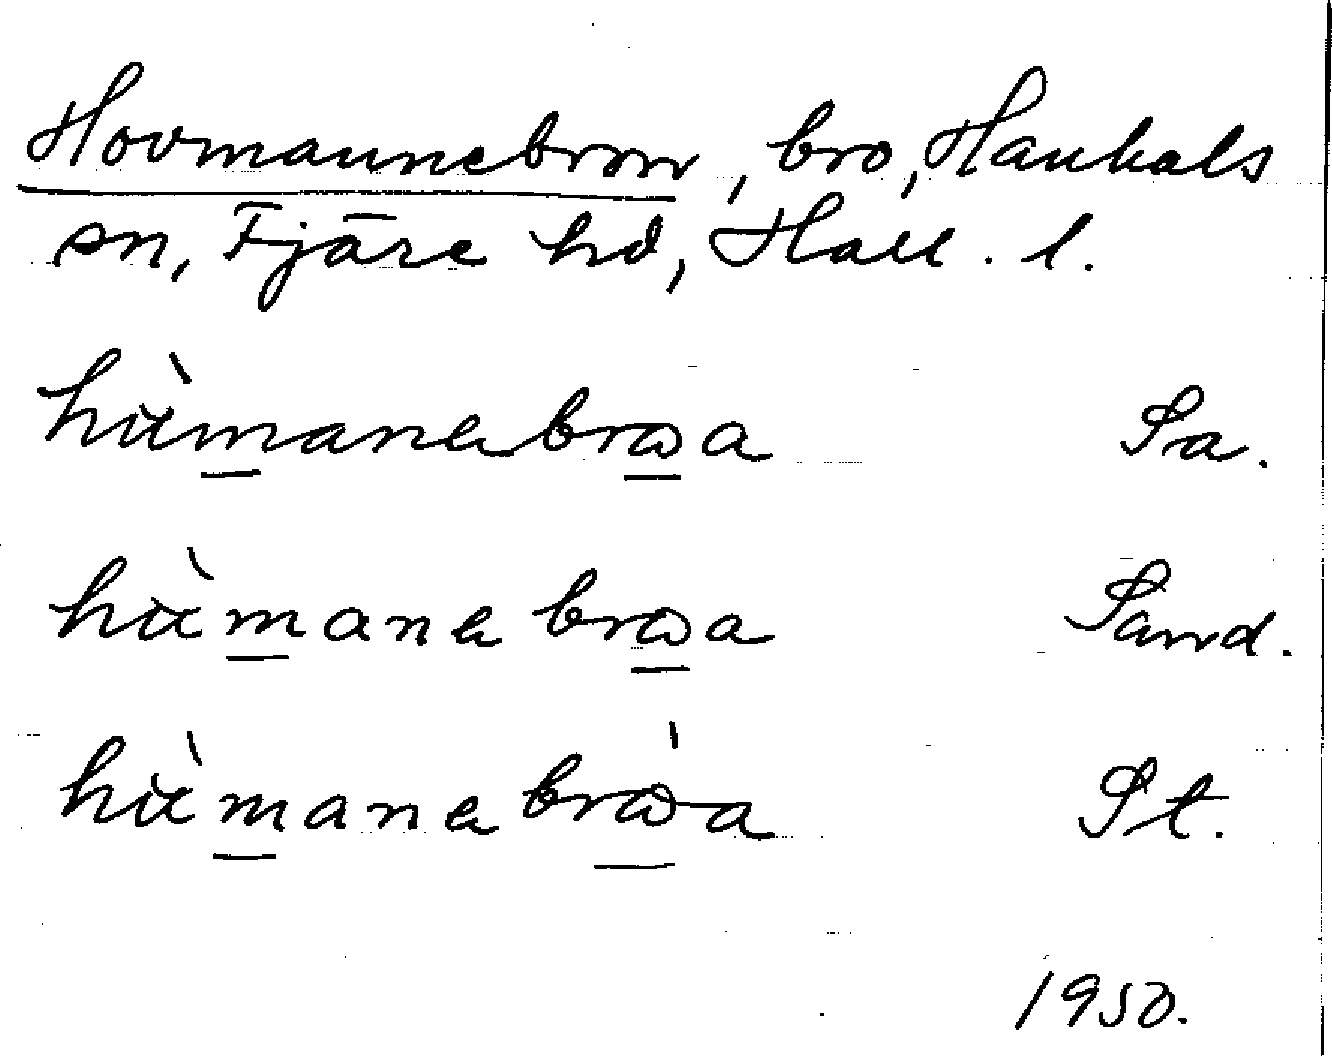 Hovmannebron, bro, Hanhals
sn, Fjäre hd, Hall. l.
hùmanabrωa Sa.
hùmanabrωa Sand.
hùmanabrὼa St.
1950.